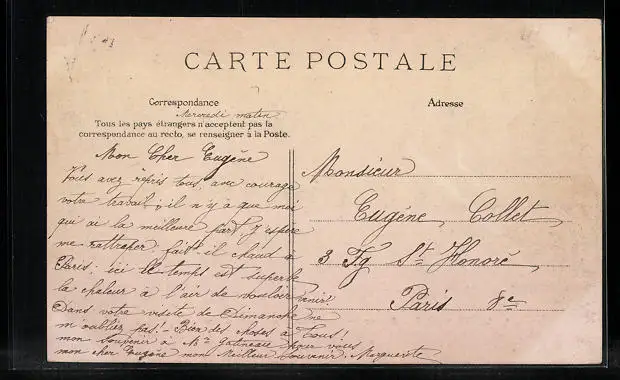 CARTE POSTALE
Correspondance
Adresse
Mercredi matin
Tous les pays étrangers n'acceptent pas la
correspondance au recto, se renseigner à la Poste.
Mon Cher Eugène
Vous avez repris tous, avec courage
votre travail; il n'y a que moi
qui ai la meilleure part. J'espère
me rattraper. fait-il chaud à
Paris; ici le temps est superbe
la chaleur à l'air de vouloir venir.
Dans votre visite de Dimanche ne
m'oubliez pas! - Bien des choses à Tous!
mon souvenir à Mr Gatineau pour vous
mon cher Eugène mon Meilleur Souvenir. Marguerite
Monsieur
Eugène Collet
3 Fg St Honoré
Paris 8e